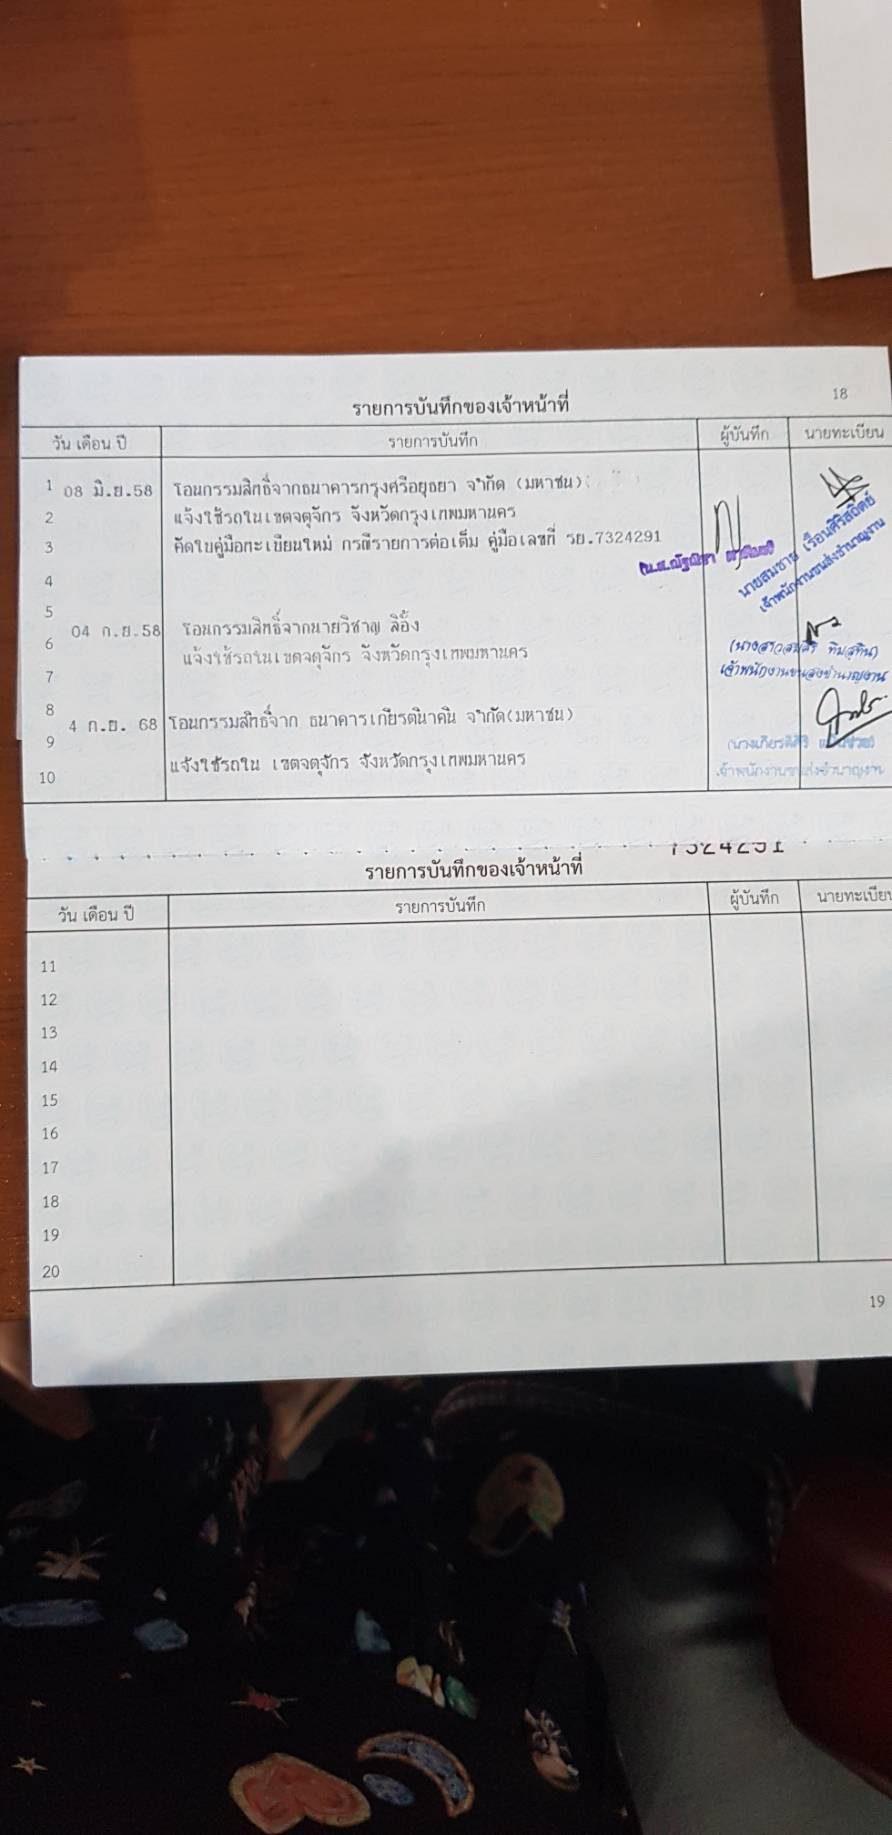 18
รายการบันทึกของเจ้าหน้าที่
วัน เดือน ปี รายการบันทึก ผู้บันทึก นายทะเบียน
1 08 มิ.ย.58 โอนกรรมสิทธิ์จากธนาคารกรุงศรีอยุธยา จำกัด (มหาชน)
2 แจ้งใช้รถในเขตจตุจักร จังหวัดกรุงเทพมหานคร
3 คัดใบคู่มือทะเบียนใหม่ กรณีรายการต่อเต็ม คู่มือเลขที่ รย.7324291
นายสมชาย เรือนศิริสถิตย์
เจ้าพนักงานขนส่งชำนาญงาน
4
5
04 ก.ย.58 โอนกรรมสิทธิ์จากนายวิชาญ ลิอึ้ง
6 แจ้งใช้รถในเขตจตุจักร จังหวัดกรุงเทพมหานคร
(นางสาวสมศิริ ทิมสุทิน)
เจ้าพนักงานขนส่งชำนาญงาน
7
8 4 ก.ย. 68 โอนกรรมสิทธิ์จาก ธนาคารเกียรตินาคิน จำกัด(มหาชน)
9
แจ้งใช้รถใน เขตจตุจักร จังหวัดกรุงเทพมหานคร
เจ้าพนักงานขนส่งชำนาญงาน
10
7324291
รายการบันทึกของเจ้าหน้าที่
วัน เดือน ปี รายการบันทึก ผู้บันทึก นายทะเบียน
11
12
13
14
15
16
17
18
19
20
19